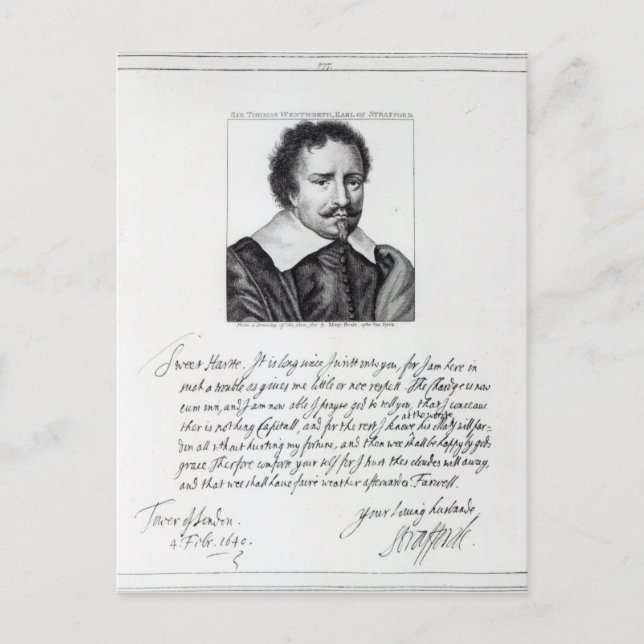 277.
SIR THOMAS WENTWORTH, EARL OF STRAFFORD.
From a Drawing of the same size by Mary Beale, after Van Dyck.
Sweet Harte. It is long since I writt unto you, for I am here in
such a trouble as gives me little or noe respett. The Chardge is now
cum inn, and I am now able I prayse god to tell you, that I conceaue
ther is nothing Capitall, and for the rest I knowe
at the worste
his Maty will par-
don all without hurting my fortune, and then wee shall be happy by gods
grace. Therfore comfort your self for I trust thes cloudes will away,
and that wee shall haue faire weather afterwardes. Farwell.
Your louing husbande
Tower of London.
4. Febr. 1640.
Strafforde.